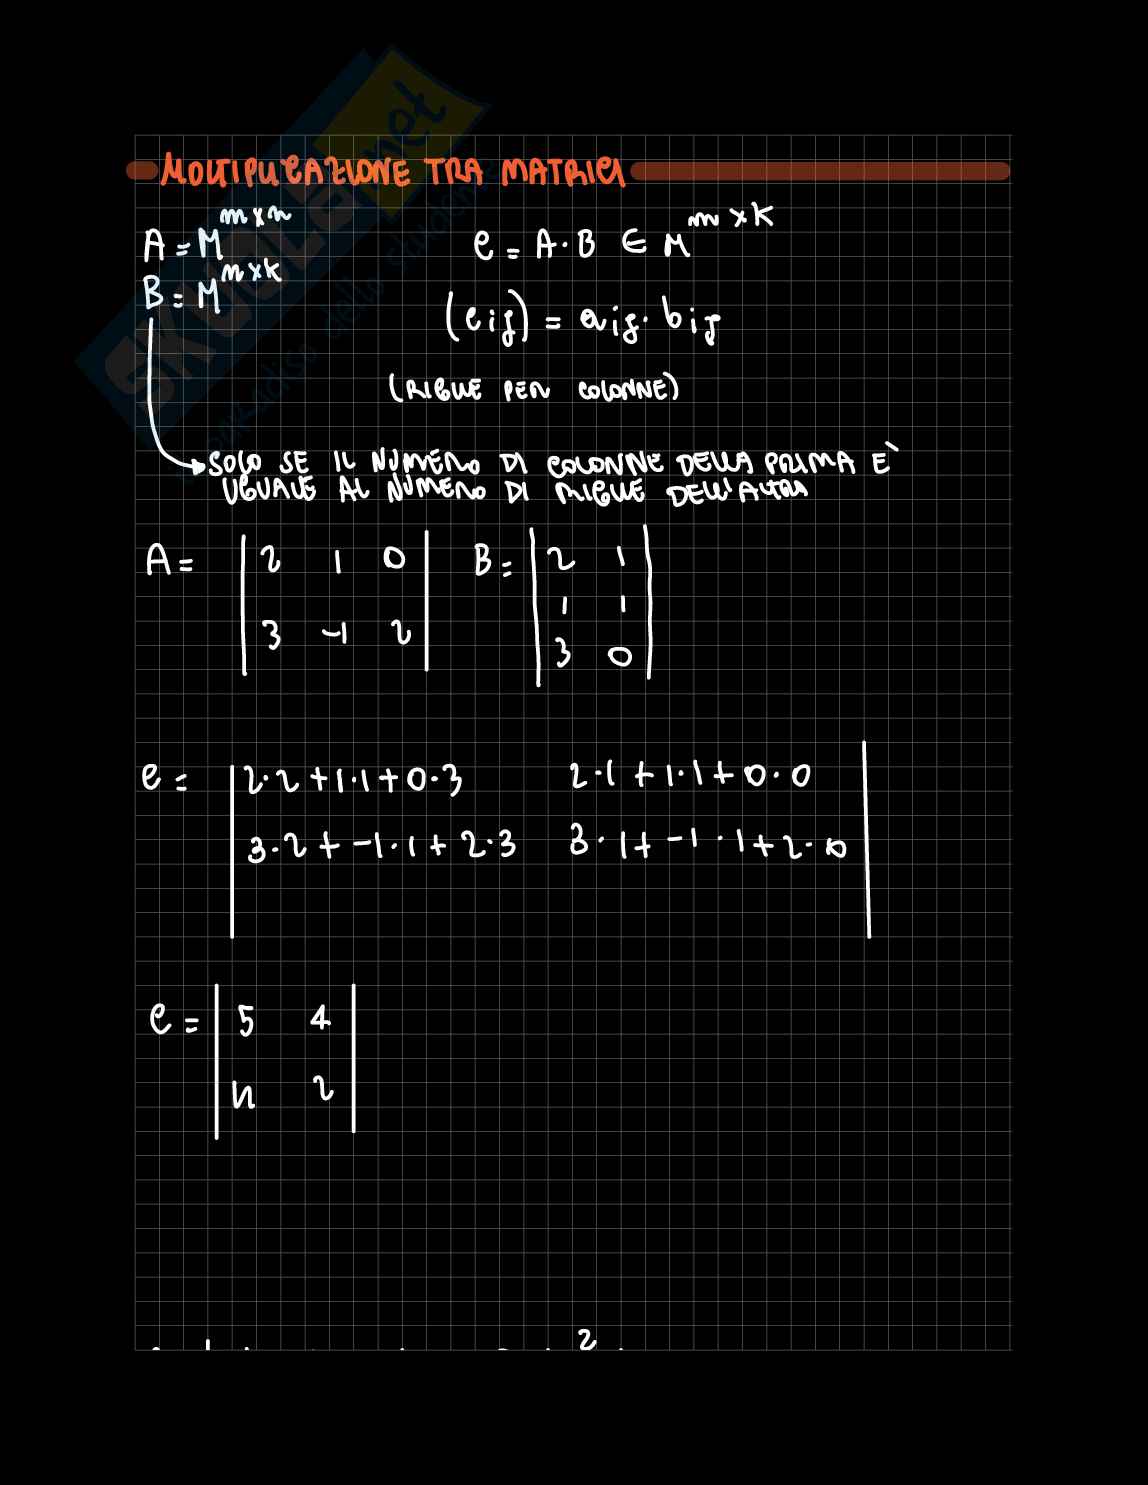 MOLTIPLICAZIONE TRA MATRICI
A = M^m×n
C = A · B ∈ M^m×k
B = M^n×k
(cij) = aij · bij
(RIGHE PER COLONNE)
SOLO SE IL NUMERO DI COLONNE DELLA PRIMA E'
UGUALE AL NUMERO DI RIGHE DELL'ALTRA
A = | 2 1 0 | B = | 2 1 |
1 1
3 -1 2
3 0
C = | 2·2+1·1+0·3 2·1+1·1+0·0 |
3·2+-1·1+2·3 3·1+-1·1+2·0
C = | 5 4 |
11 2
2
SKUOLA.net